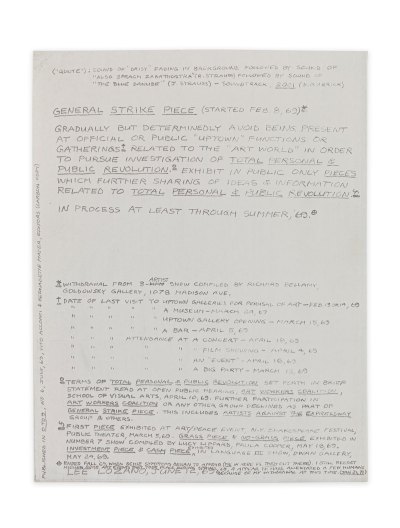 ("QUOTE"): SOUND OF "DAISY" FADING IN BACKGROUND FOLLOWED BY SOUND OF
"ALSO SPRACH ZARATHUSTRA" (R. STRAUSS) FOLLOWED BY SOUND OF
"THE BLUE DANUBE" (J. STRAUSS) - SOUNDTRACK, 2001 (S. KUBRICK)
GENERAL STRIKE PIECE (STARTED FEB. 8, 69)
GRADUALLY BUT DETERMINEDLY AVOID BEING PRESENT
AT OFFICIAL OR PUBLIC "UPTOWN" FUNCTIONS OR
GATHERINGS RELATED TO THE "ART WORLD" IN ORDER
TO PURSUE INVESTIGATION OF TOTAL PERSONAL &
PUBLIC REVOLUTION. EXHIBIT IN PUBLIC ONLY PIECES
WHICH FURTHER SHARING OF IDEAS & INFORMATION
RELATED TO TOTAL PERSONAL & PUBLIC REVOLUTION.
IN PROCESS AT LEAST THROUGH SUMMER, '69.
WITHDRAWAL FROM 3-ARTIST SHOW COMPILED BY RICHARD BELLAMY,
GOLDOWSKY GALLERY, 1078 MADISON AVE.
DATE OF LAST VISIT TO UPTOWN GALLERIES FOR PERUSAL OF ART - FEB. 69
" " " " " A MUSEUM - MARCH 69
" " " " " UPTOWN GALLERY OPENING - MARCH 15, 69
" " " " " A BAR - APRIL 5, 69
" " " ATTENDANCE AT A CONCERT - APRIL 18, 69
" " " " " FILM SHOWING - APRIL 4, 69
" " " " " AN EVENT - APRIL 18, 69
" " " " " A BIG PARTY - MARCH 15, 69
TERMS OF TOTAL PERSONAL & PUBLIC REVOLUTION SET FORTH IN BRIEF
STATEMENT READ AT OPEN PUBLIC HEARING, ART WORKERS COALITION,
SCHOOL OF VISUAL ARTS, APRIL 10, 69. FURTHER PARTICIPATION IN
ART WORKERS COALITION OR ANY OTHER GROUP DECLINED AS PART OF
GENERAL STRIKE PIECE. THIS INCLUDES ARTISTS AGAINST THE EXPEDIENCY
GROUP & OTHERS.
FIRST PIECE EXHIBITED AT ART/PEACE EVENT, N.Y. SHAKESPEARE FESTIVAL,
PUBLIC THEATER, MARCH 5, 69. GRASS PIECE & NO-GRASS PIECE EXHIBITED IN
NUMBER 7 SHOW COMPILED BY LUCY LIPPARD, PAULA COOPER, MAY 18, 69.
INVESTMENT PIECE & CASH PIECE, IN LANGUAGE III SHOW, DWAN GALLERY,
MAY 24, 69.
LEE LOZANO, JUNE 69
PUBLISHED IN 0 TO 9, NO. 6, JULY, 69, VITO ACCONCI & BERNADETTE MAYER, EDITORS (CARBON COPY)